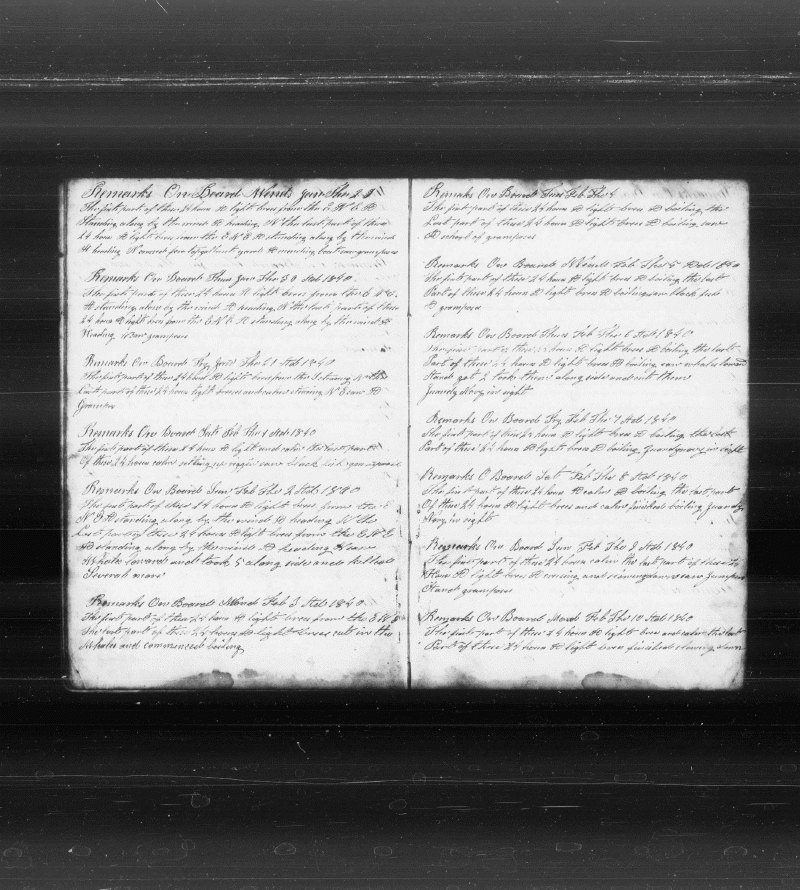 Remarks On Board Wends Jan The 29
The first part of these 24 hours A light brees from the E N E A
Standing along by the wind A heading N the last part of these
24 hours A light brees from the E N E A standing along by the wind
A heading N
Remarks On Board Thurs Jan The 30 Ad 1840
The first part of these 24 hours A light brees from the E N E
A standing along by the wind A heading N the last part of these
24 hours A light brees from the E N E A standing along by the wind A
Heading N saw grampuses
Remarks On Board Fry Jan The 31 Ad 1840
The first part of these 24 hours A light brees from the
Last part of these 24 hours light brees and calm steering N E saw A
Grampus
Remarks On Board Sat Feb The 1 Ad 1840
The first part of these 24 hours A light and calm the last part
Of these 24 hours calm saw black fish
Remarks On Board Sun Feb The 2 Ad 1840
The first part of these 24 hours A light brees from the E
N E A standing along by the wind A heading N the
Last part of these 24 hours A light brees from the E N E
A standing along by the wind A heading N saw
Whales lowards and took 5 along side and kelled
Several more
Remarks On Board Mond Feb 3 Ad 1840
The first part of these 24 hours A light brees from the E N E
The last part of these 24 hours A light brees cutt in the
Whales and commenced boiling
Remarks On Board Tus Feb The 4
The first part of these 24 hours A light brees A boiling the
Last part of these 24 hours A light brees A boiling saw
A school of grampuses
Remarks On Board Wends Feb The 5 Ad 1840
The first part of these 24 hours A light brees A boiling the last
Part of these 24 hours A light brees A boiling saw black fish
& grampus
Remarks On Board Thurs Feb The 6 Ad 1840
The first part of these 24 hours A light brees A boiling the last
Part of these 24 hours A light brees A boiling saw whales lowared
And got 2 took them along side and cut them
Juandynary in sight
Remarks On Board Fry Feb The 7 Ad 1840
The first part of these 24 hours A light brees A boiling the last
Part of these 24 hours A light brees A boiling Juandynary in sight
Remarks O Board Sat Feb The 8 Ad 1840
The first part of these 24 hours A calm A boiling the last part
Of these 24 hours A light brees and calm finished boiling Juandy
Nary in sight
Remarks On Board Sun Feb The 9 Ad 1840
The first part of these 24 hours calm the last part of these 24
Hours A light brees A cruising and
And grampuses
Remarks On Board Mond Feb The 10 Ad 1840
The first part of these 24 hours A light brees and calm the last
Part of these 24 hours A light brees finished stowing down